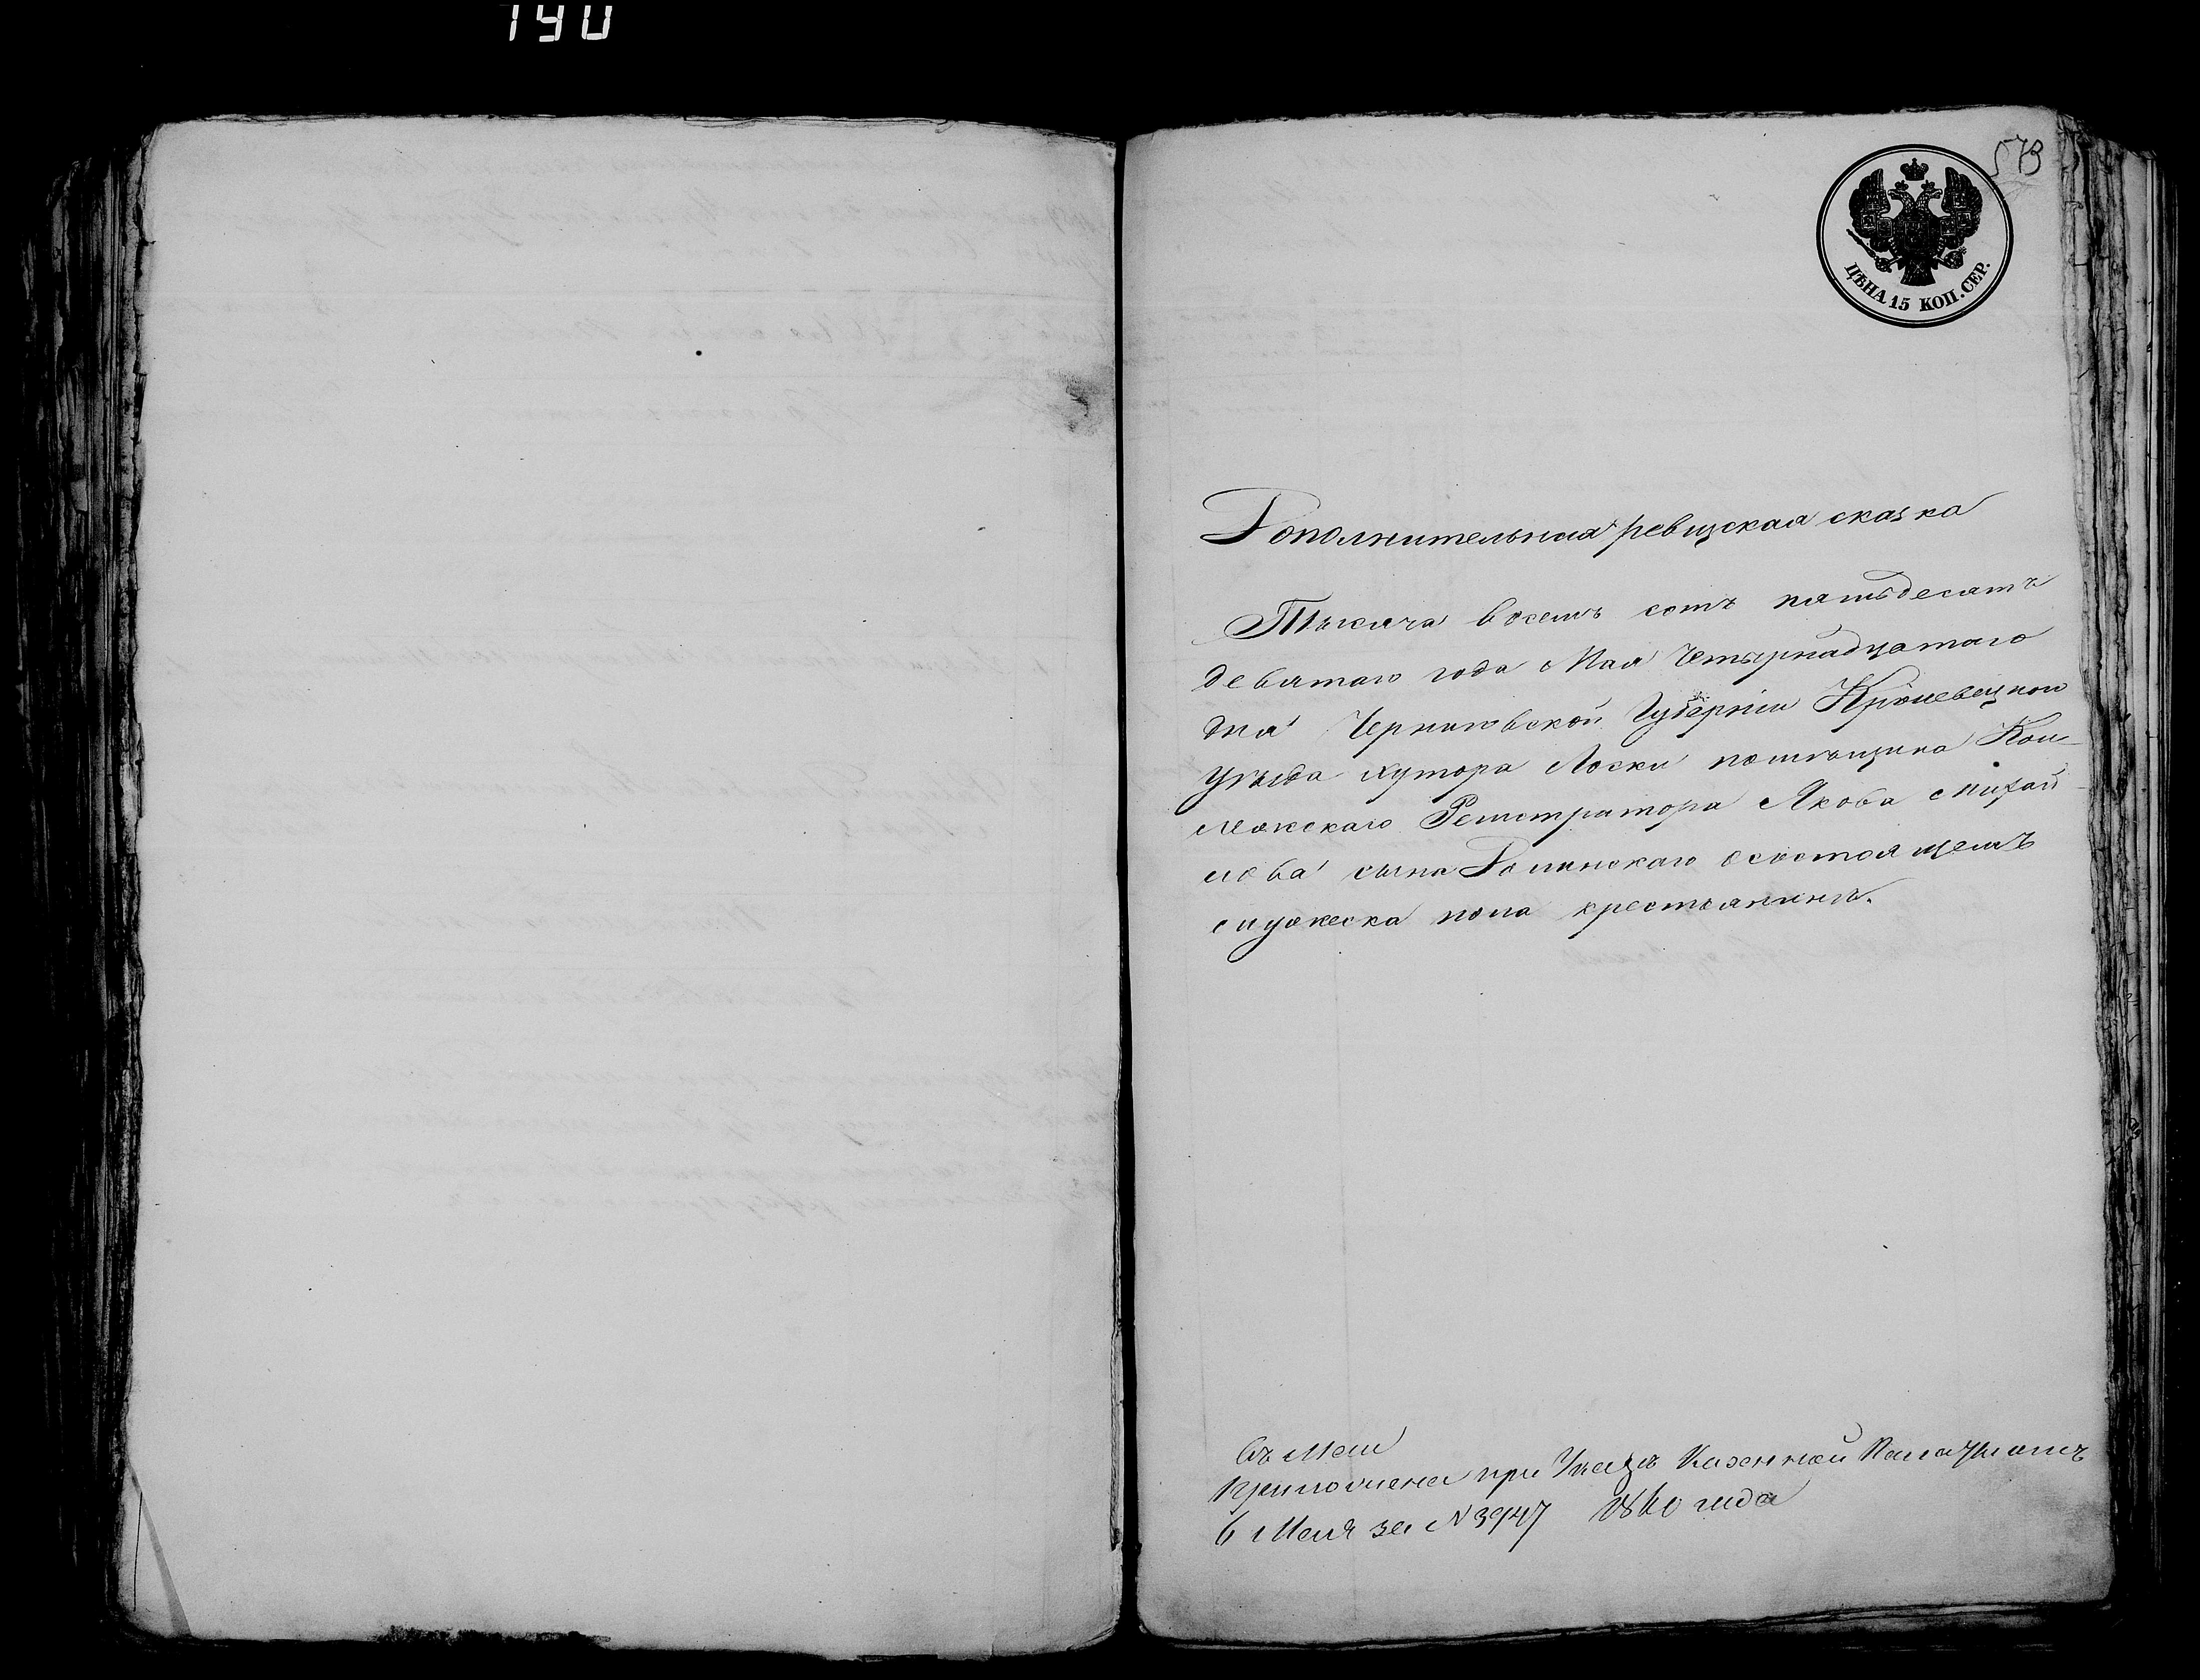 190
573
ЦѢНА 15 КОП. СЕР.
Дополнительная ревизская сказка
Тысяча восемь сотъ пятьдесятъ
девятаго года Мая четырнадцатаго
дня Черниговской Губерніи Кролевецкого
уѣзда хутора Лоски помѣщика Кол-
лежскаго Регистратора Якова Михай-
лова сына Долинскаго о состоящемъ
мужеска пола крестьянинѣ.
Приложена при Указѣ Казенной Палаты отъ
6 Мая за N 3947 1860 года